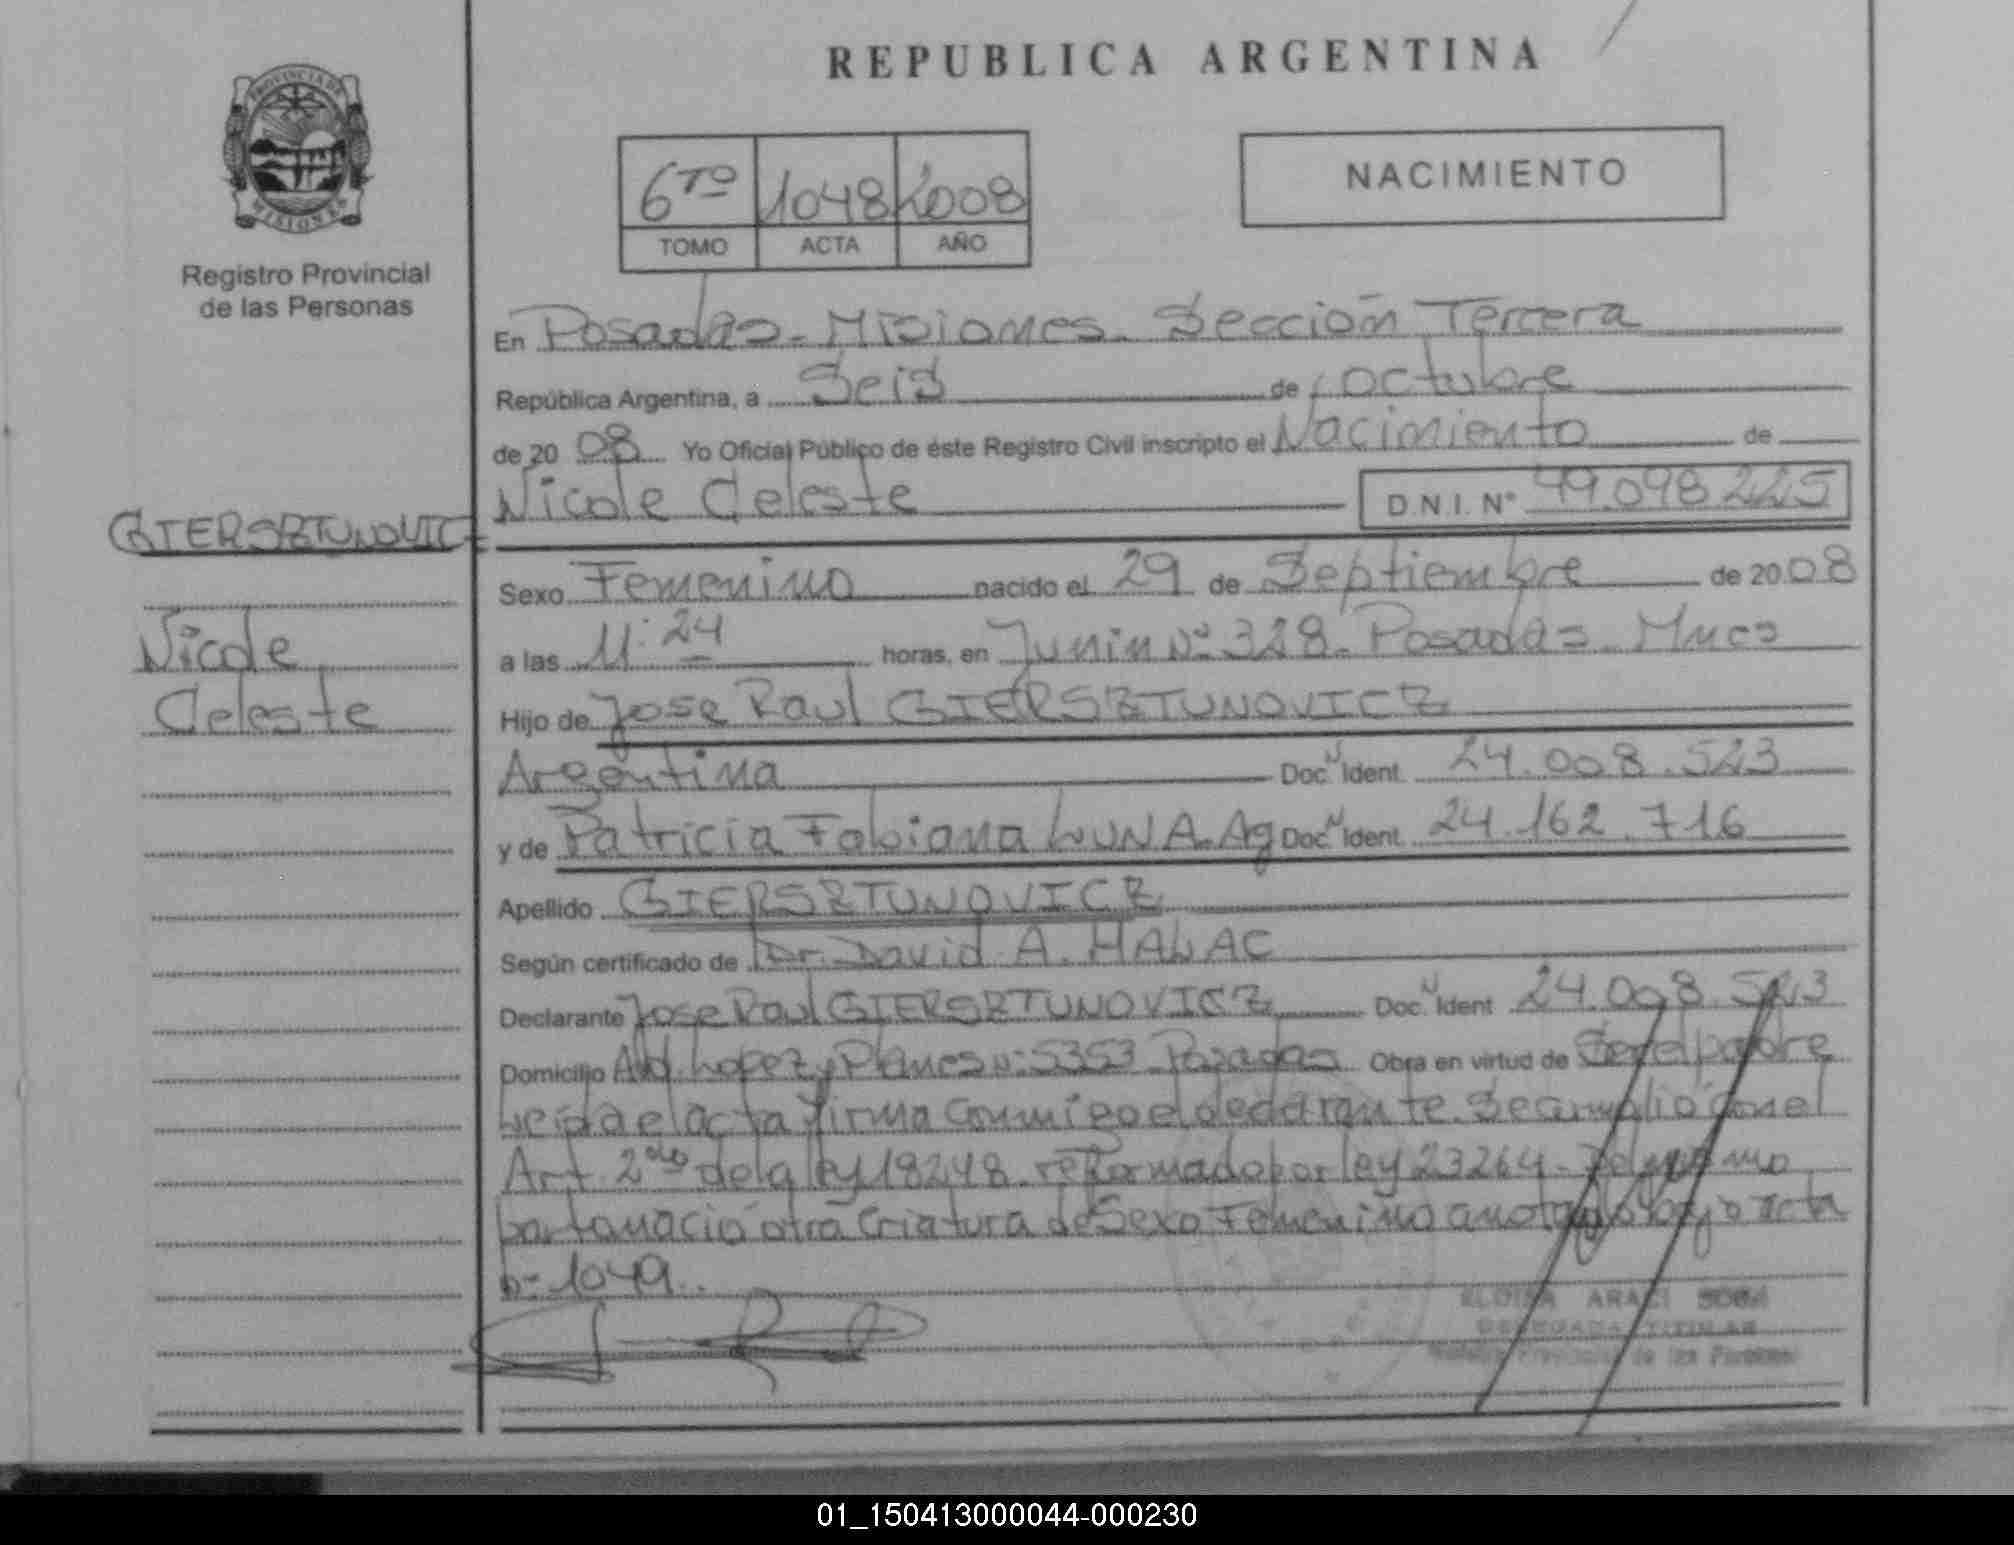 REPUBLICA ARGENTINA
PROVINCIA DE
MISIONES
Registro Provincial
de las Personas
6TO 1048 2008
TOMO ACTA AÑO
NACIMIENTO
En Posadas - Misiones. Sección Tercera
República Argentina, a Seis de octubre
de 20 08 Yo Oficial Público de éste Registro Civil inscripto el Nacimiento de
Nicole Celeste D.N.I. Nº 49.098.225
GIERSZTUNOVICZ
Nicole
Celeste
Sexo Femenino nacido el 29 de Septiembre de 20 08
a las 11:24 horas, en Junin Nº 328. Posadas - Mnes
Hijo de Jose Raul GIERSZTUNOVICZ
Argentina Doc. Ident. 24.008.523
y de Patricia Fabiana LUNA. Ag Doc. Ident. 24.162.716
Apellido GIERSZTUNOVICZ
Según certificado de Dr. David A. HALAC
Declarante Jose Raul GIERSZTUNOVICZ Doc. Ident 24.008.523
Domicilio Avd. Lopez y Planes Nº 5353 Posadas Obra en virtud de Ser el padre
Leida el acta firma conmigo el declarante. Se cumplió con el
Art. 2do de la ley 18248. reformado por ley 23264. Del mismo
parto nació otra Criatura de Sexo Femenino anotado bajo acta
nº 1049.
ELOISA ARACI SOSA
DELEGADA TITULAR
Registro Provincial de las Personas
01_150413000044-000230